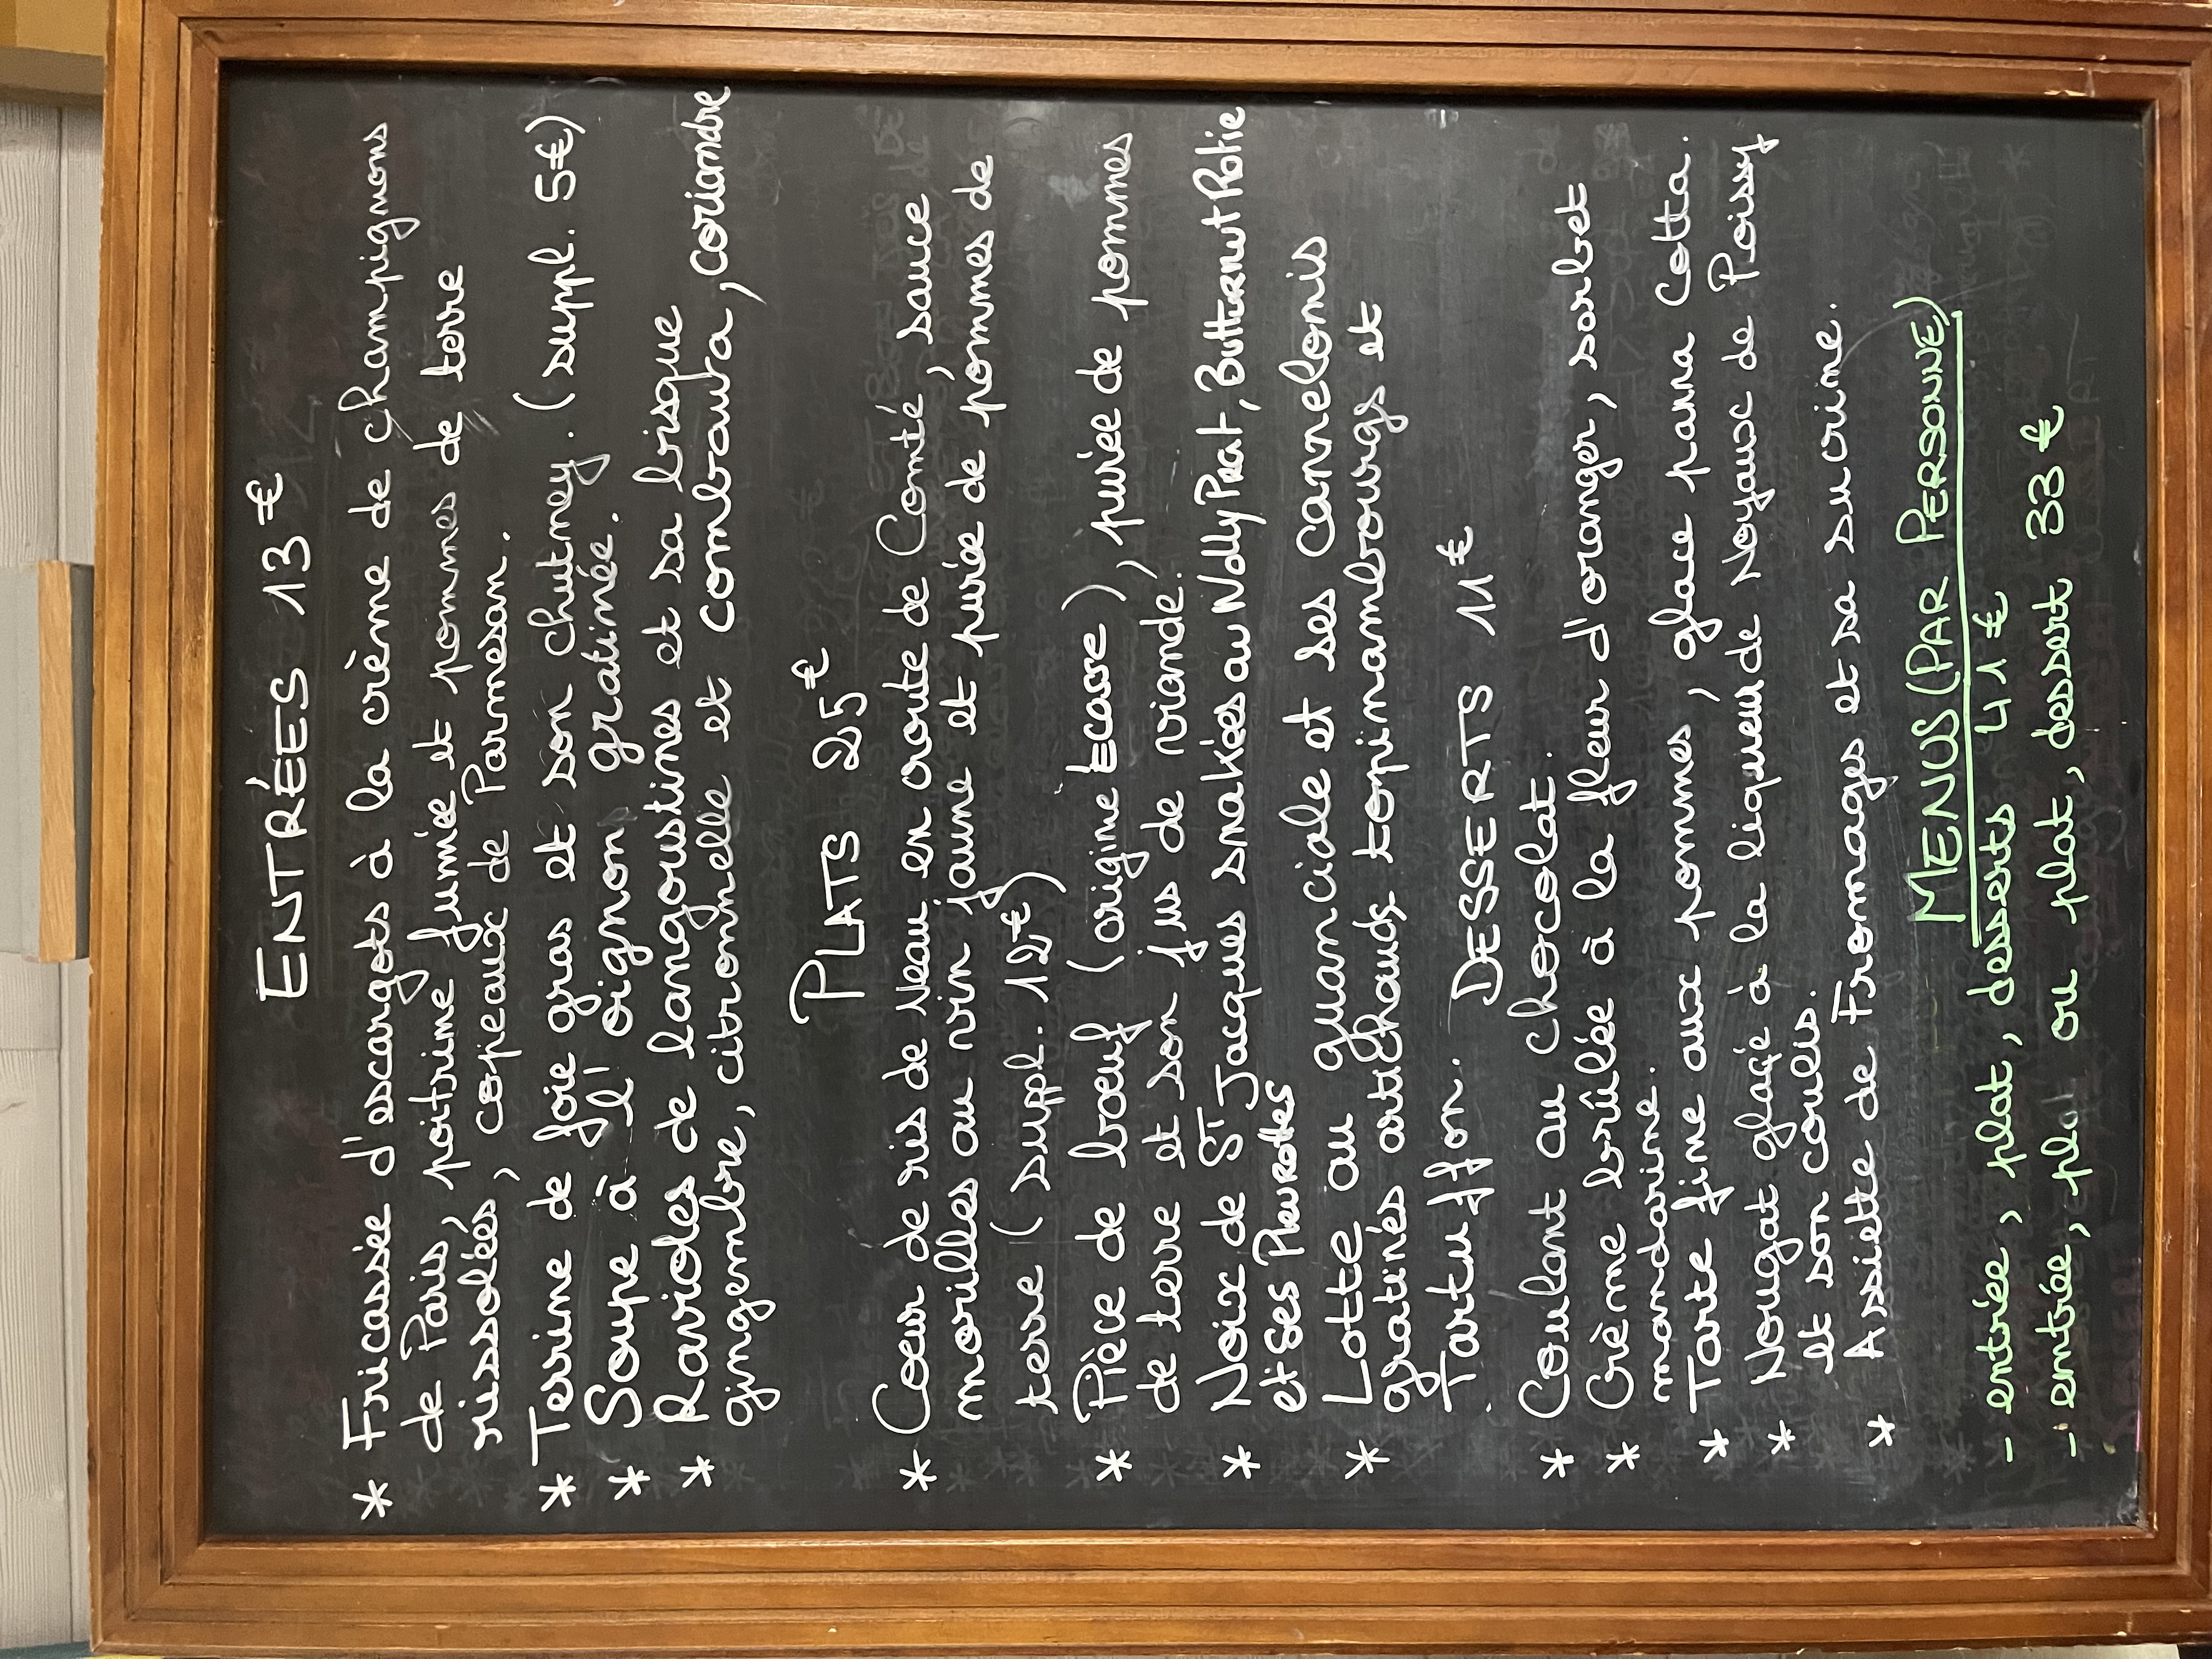 ENTRÉES 13€
* Fricassée d'escargots à la crème de champignons
de Paris, poitrine fumée et pommes de terre
rissolées, copeaux de Parmesan.
* Terrine de foie gras et son chutney. (suppl. 5€)
* Soupe à l'oignon gratinée.
* Ravioles de langoustines et sa bisque
gingembre, citronnelle et combawa, coriandre
PLATS 25€
* Coeur de ris de Veau en croute de Comté, sauce
morilles au vin jaune et purée de pommes de
terre (suppl. 12€)
* Pièce de boeuf (origine Ecosse), purée de pommes
de terre et son jus de viande.
* Noix de St Jacques snakées au Nolly Prat, Butternut Rotie
et Ses Pleurottes
* Lotte au guanciale et ses cannelonis
gratinés artichauds topinambourgs et
Tartuffon.
DESSERTS 11€
* Coulant au chocolat.
* Crème brûlée à la fleur d'oranger, sorbet
mandarine.
* Tarte fine aux pommes, glace panna Cotta.
* Nougat glaçé à la liqueur de Noyaux de Poissy
et son coulis.
* Assiette de Fromages et sa sucrine.
MENUS (PAR PERSONNE)
- entrée, plat, desserts 41€
- entrée, plat ou plat, dessert 33€